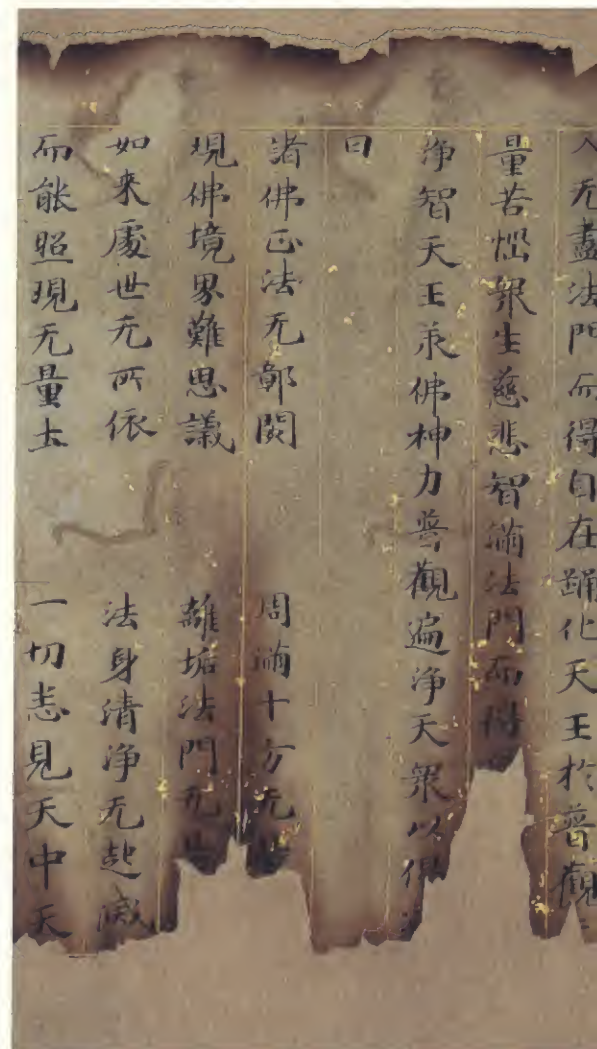 入无盡法門而得自在踊化天王於普觀
量苦惱眾生慈悲智滿法門而得
淨智天王承佛神力普觀遍淨天眾以偈
曰
諸佛正法无鄣閡　周滿十方无
現佛境界難思議　離垢法門无
如来處世无所依　法身清淨无起滅
而能照現无量土　一切悉見天中天